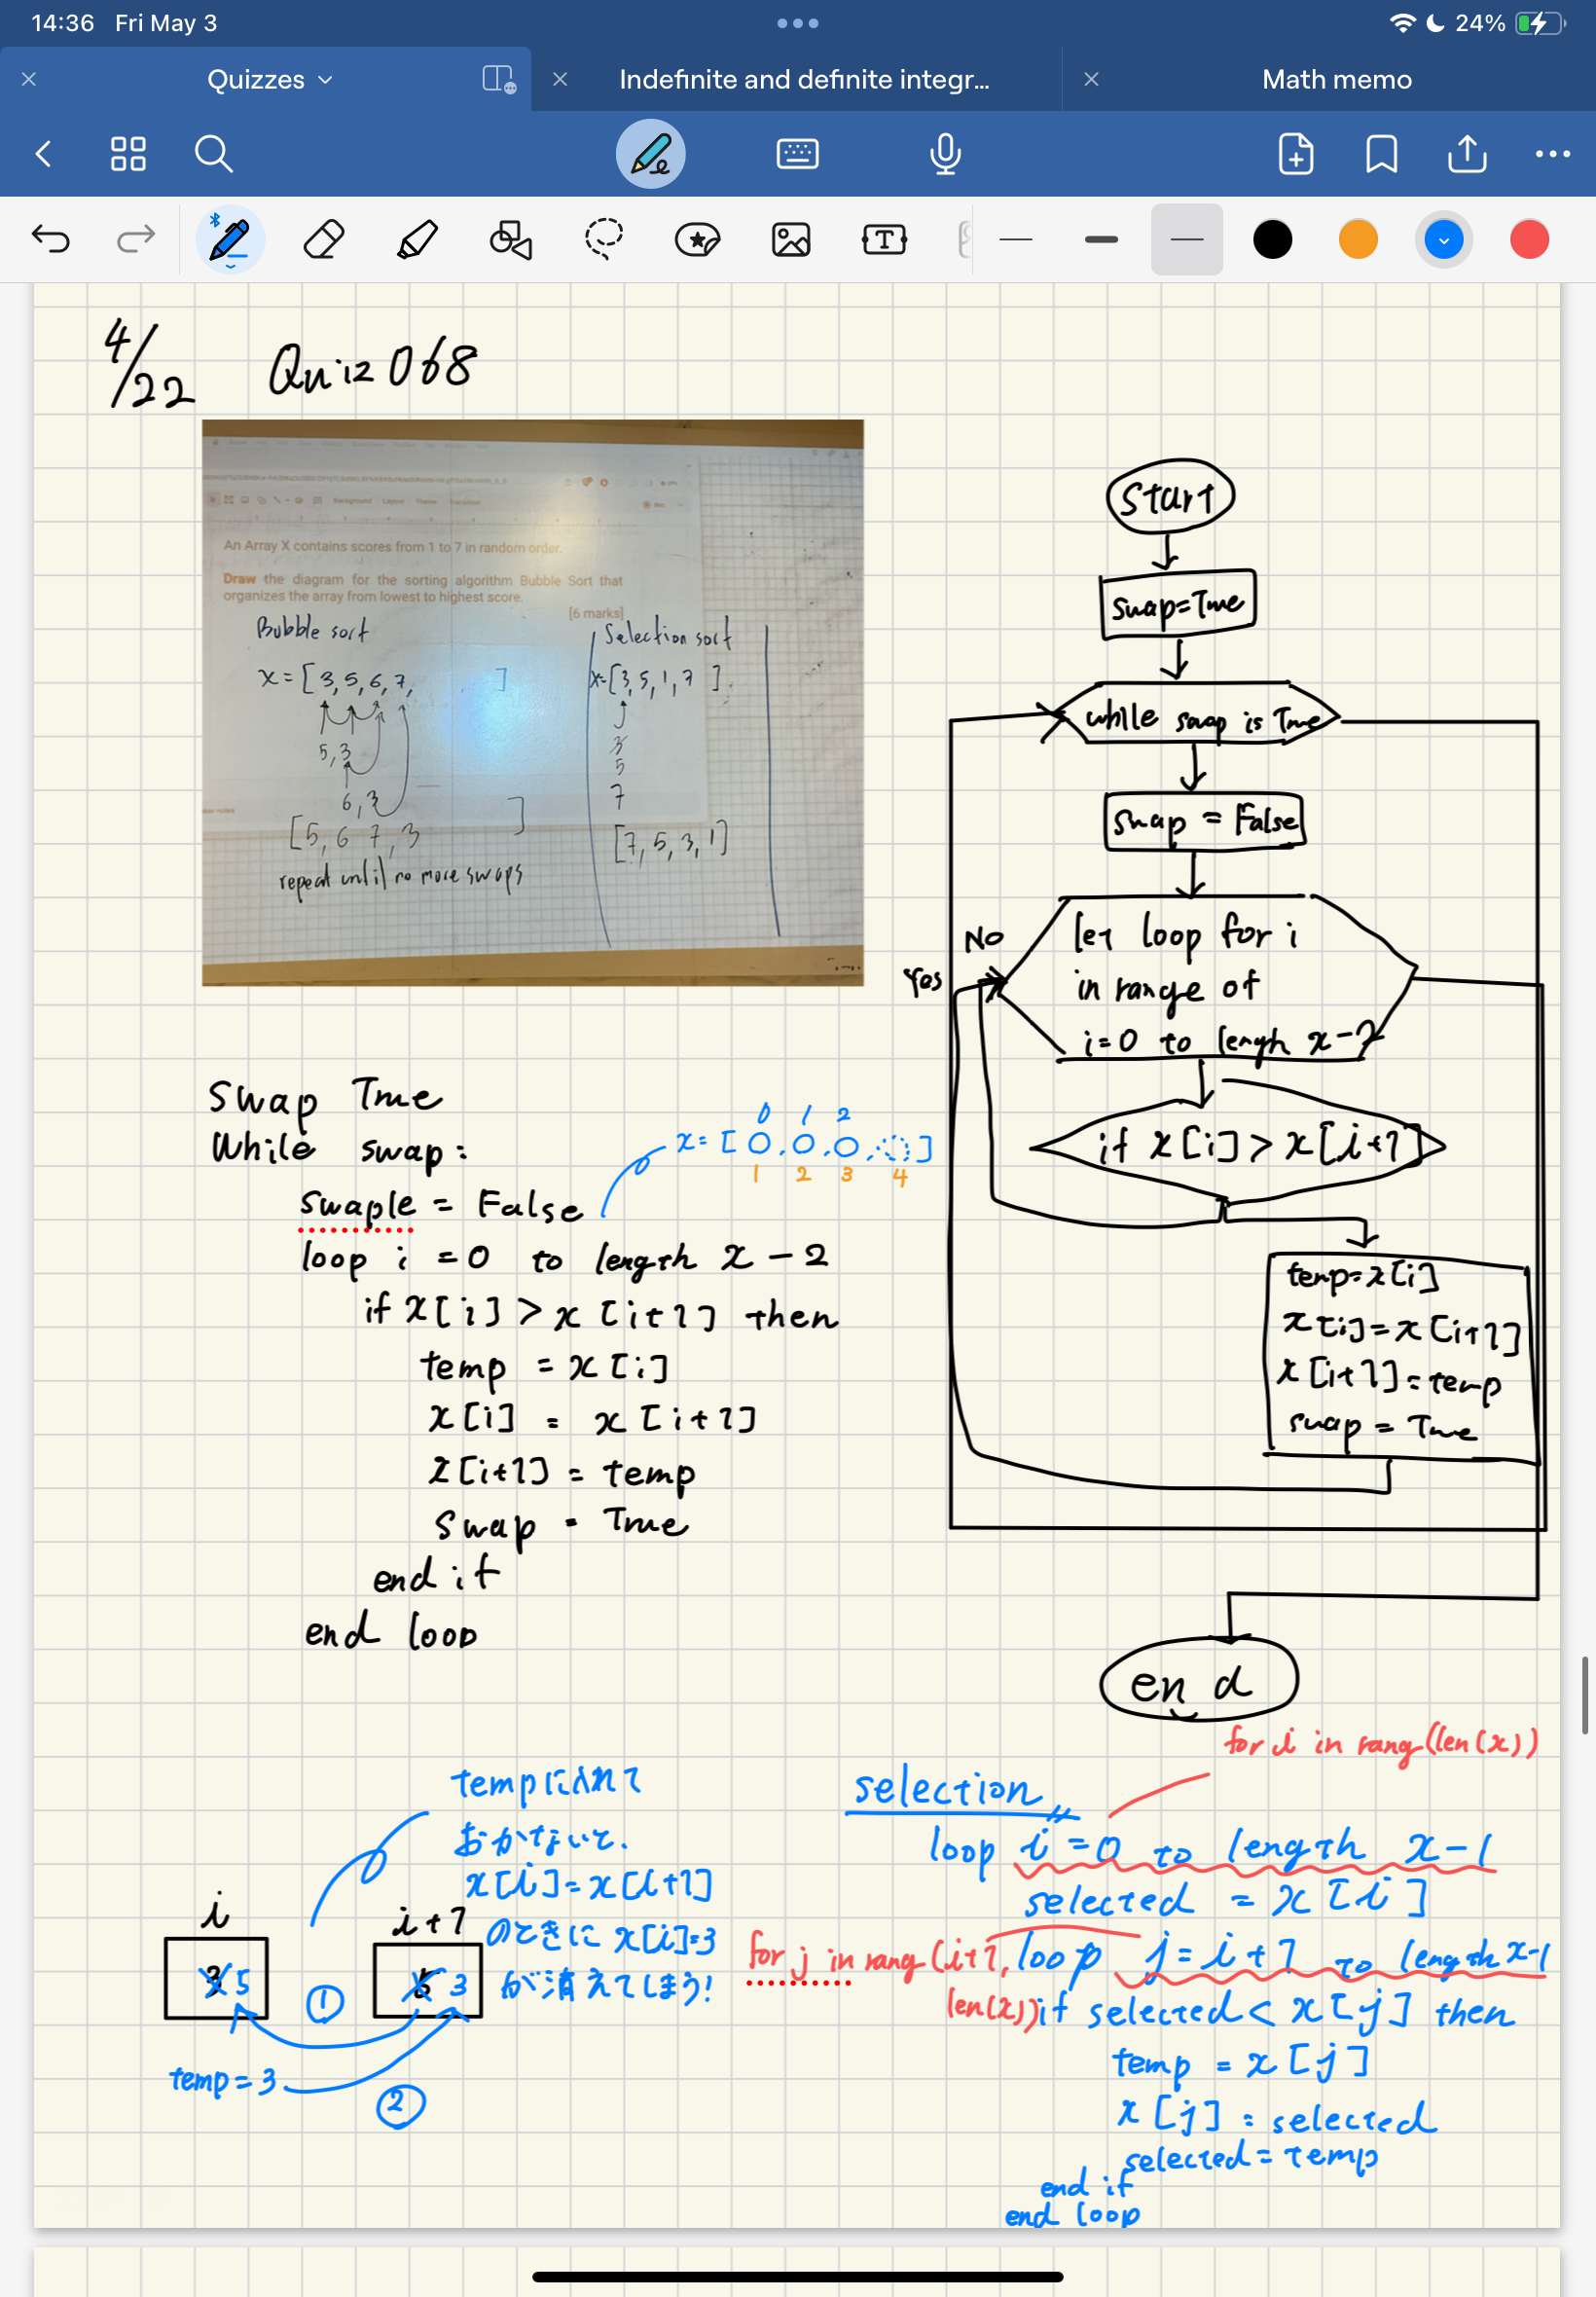 14:36 Fri May 3
24%
Quizzes
Indefinite and definite integr...
Math memo
4/22 Quiz 068
An Array X contains scores from 1 to 7 in random order.
Draw the diagram for the sorting algorithm Bubble Sort that
organizes the array from lowest to highest score.
[6 marks]
Bubble sort
x = [3, 5, 6, 7, ]
5, 3
6, 3
[5, 6 7, 3 ]
repeat until no more swaps
Selection sort
x=[3, 5, 1, 7 ]
3
5
7
[7, 5, 3, 1]
Start
swap=True
while swap is True
swap = False
No
Yes
let loop for i
in range of
i=0 to lengh x-2
if x[i] > x[i+1]
temp=x[i]
x[i]=x[i+1]
x[i+1]=temp
swap = True
end
swap True
While swap:
swaple = False
loop i =0 to length x - 2
if x[i] > x[i+1] then
temp = x[i]
x[i] = x[i+1]
x[i+1] = temp
swap = True
end if
end loop
0 1 2
x= [ O, O, O, O ]
1 2 3 4
tempに入れて
おかないと、
x[i]=x[i+1]
のときに x[i]=3
が消えてしまう!
i
i+1
3 5
5 3
①
temp=3
②
for i in rang(len(x))
selection
loop i=0 to length x-1
selected = x[i]
for j in rang(i+1,
len(x))
loop j=i+1 to length x-1
if selected < x[j] then
temp = x[j]
x[j] = selected
selected = temp
end if
end loop